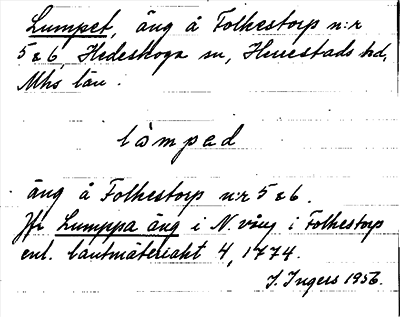 Lumpet, äng å Folkestorp n:r
5 & 6, Hedeskoga sn, Herrestads hd,
Mhs län.
làmpad
äng å Folkestorp n:r 5 & 6.
Jfr Lumppa äng i N. vång i Folkestorp
enl. lantmäteriakt 4, 1774.
I. Ingers 1956.